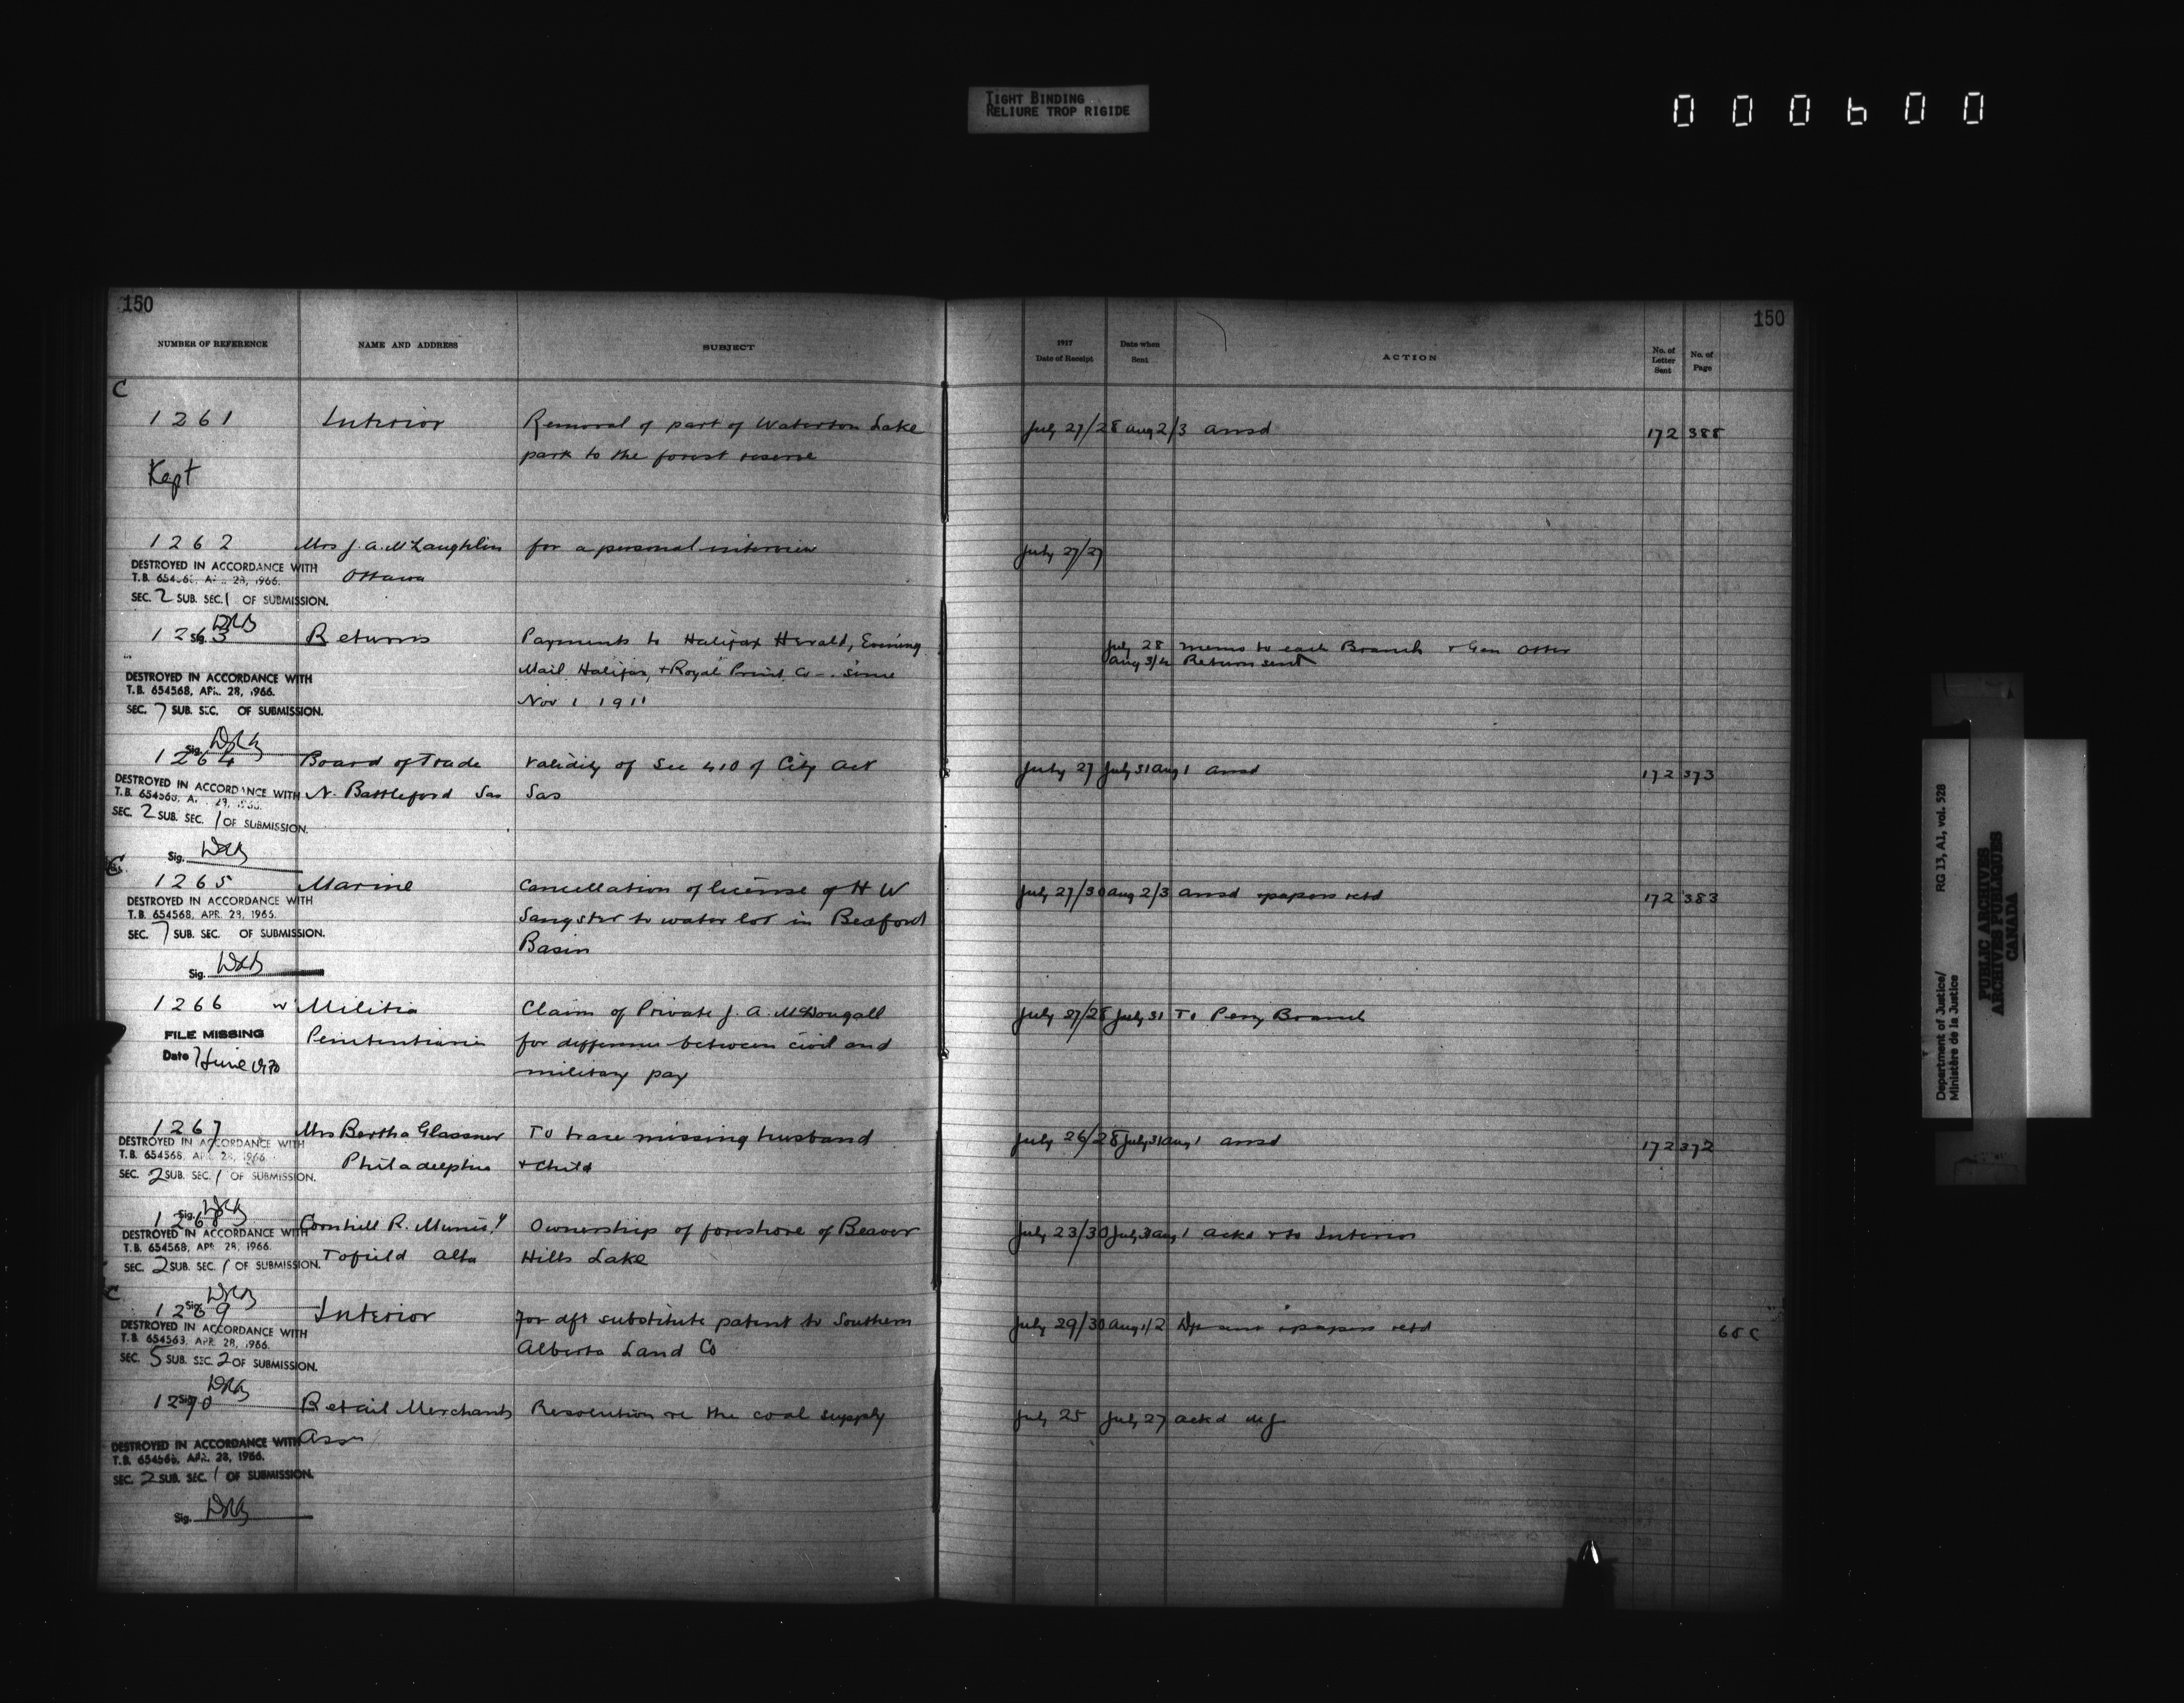 TIGHT BINDING
RELIURE TROP RIGIDE
000600
150 150
NUMBER OF REFERENCE NAME AND ADDRESS SUBJECT 1917 Date of Receipt Date when Sent ACTION No. of Letter Sent No. of Page
C
1261 Interior Removal of part of Waterton Lake July 27/28 Aug 2/3 ansd 172 388
park to the forest reserve
Kept
1262 Mrs J. A. McLaughlin for a personal interview July 27/27
DESTROYED IN ACCORDANCE WITH
Ottawa
T.B. 654568, APR. 28, 1966.
SEC. 2 SUB. SEC. 1 OF SUBMISSION.
Sig. DRB
1263 Returns Payments to Halifax Herald, Evening July 28 memo to each Branch + Gen Otter
Mail Halifax, + Royal Print. Co - since Aug 3/4 Return sent
DESTROYED IN ACCORDANCE WITH
T.B. 654568, APR. 28, 1966.
Nov 1 1911
SEC. 7 SUB. SEC. OF SUBMISSION.
Sig. DRB
1264 Board of Trade Validity of Sec 410 of City Act July 27 July 31 Aug 1 ansd 172 373
DESTROYED IN ACCORDANCE WITH
N. Battleford Sas Sas
T.B. 654568, APR. 28, 1966.
SEC. 2 SUB. SEC. 1 OF SUBMISSION.
Sig. DRB
C
1265 Marine Cancellation of license of H W July 27/30 Aug 2/3 ansd + papers retd 172 383
DESTROYED IN ACCORDANCE WITH
T.B. 654568, APR. 28, 1966.
Sangster to water lot in Bedford
SEC. 7 SUB. SEC. OF SUBMISSION.
Basin
Sig. DRB
1266 Militia Claim of Private J. A. McDougall July 27/28 July 31 To Peny Branch
FILE MISSING
Penitentiaries for difference between civil and
Date 7 June 1970
military pay
1267 Mrs Bertha Glassner To trace missing husband July 26/28 July 31 Aug 1 ansd 172 372
DESTROYED IN ACCORDANCE WITH
T.B. 654568, APR. 28, 1966.
Philadelphia + child
SEC. 2 SUB. SEC. 1 OF SUBMISSION.
Sig. DRB
1268 Cornhill R. Municy Ownership of foreshore of Beaver July 23/30 July 31 Aug 1 ackd + to Interior
DESTROYED IN ACCORDANCE WITH
T.B. 654568, APR. 28, 1966.
Tofield Alta Hills Lake
SEC. 2 SUB. SEC. 1 OF SUBMISSION.
Sig. DRB
C
1269 Interior For dft substitute patent to Southern July 29/30 Aug 1/2 Dft sent + papers retd 68 C
DESTROYED IN ACCORDANCE WITH
T.B. 654563, APR. 28, 1966.
Alberta Land Co
SEC. 5 SUB. SEC. 2 OF SUBMISSION.
Sig. DRB
1270 Retail Merchants Resolution re the coal supply July 25 July 27 ackd
Assn
DESTROYED IN ACCORDANCE WITH
T.B. 654568, APR. 28, 1966.
SEC. 2 SUB. SEC. 1 OF SUBMISSION.
Sig. DRB
Department of Justice/ RG 13, A1, vol. 528
Ministère de la Justice
PUBLIC ARCHIVES
ARCHIVES PUBLIQUES
CANADA